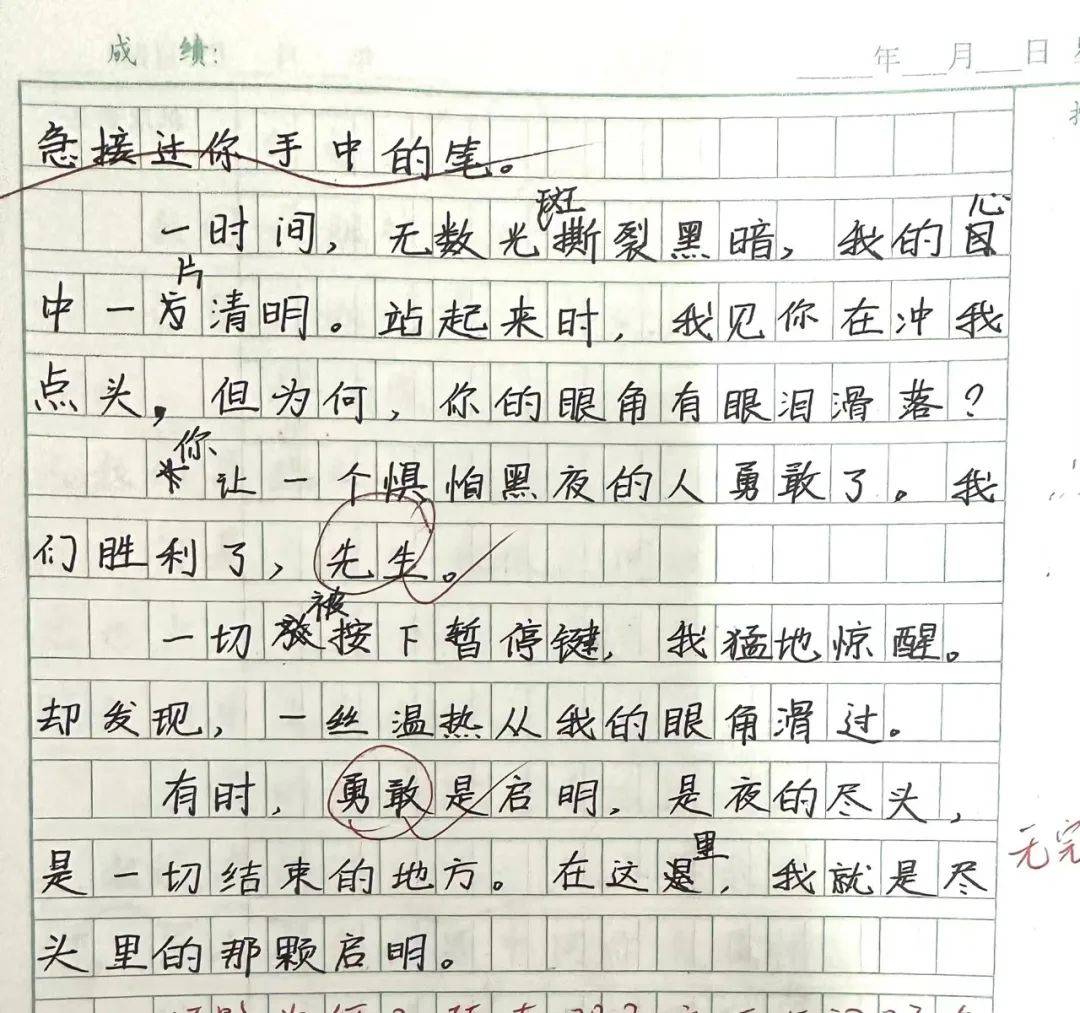 成 绩：
年 月 日
急接过你手中的笔。
一时间，无数光斑撕裂黑暗，我的心
中一片清明。站起来时，我见你在冲我
点头，但为何，你的眼角有眼泪滑落？
你让一个惧怕黑夜的人勇敢了。我
们胜利了，先生。
一切被按下暂停键，我猛地惊醒。
却发现，一丝温热从我的眼角滑过。
有时，勇敢是启明，是夜的尽头，
是一切结束的地方。在这里，我就是尽
无完
头里的那颗启明。